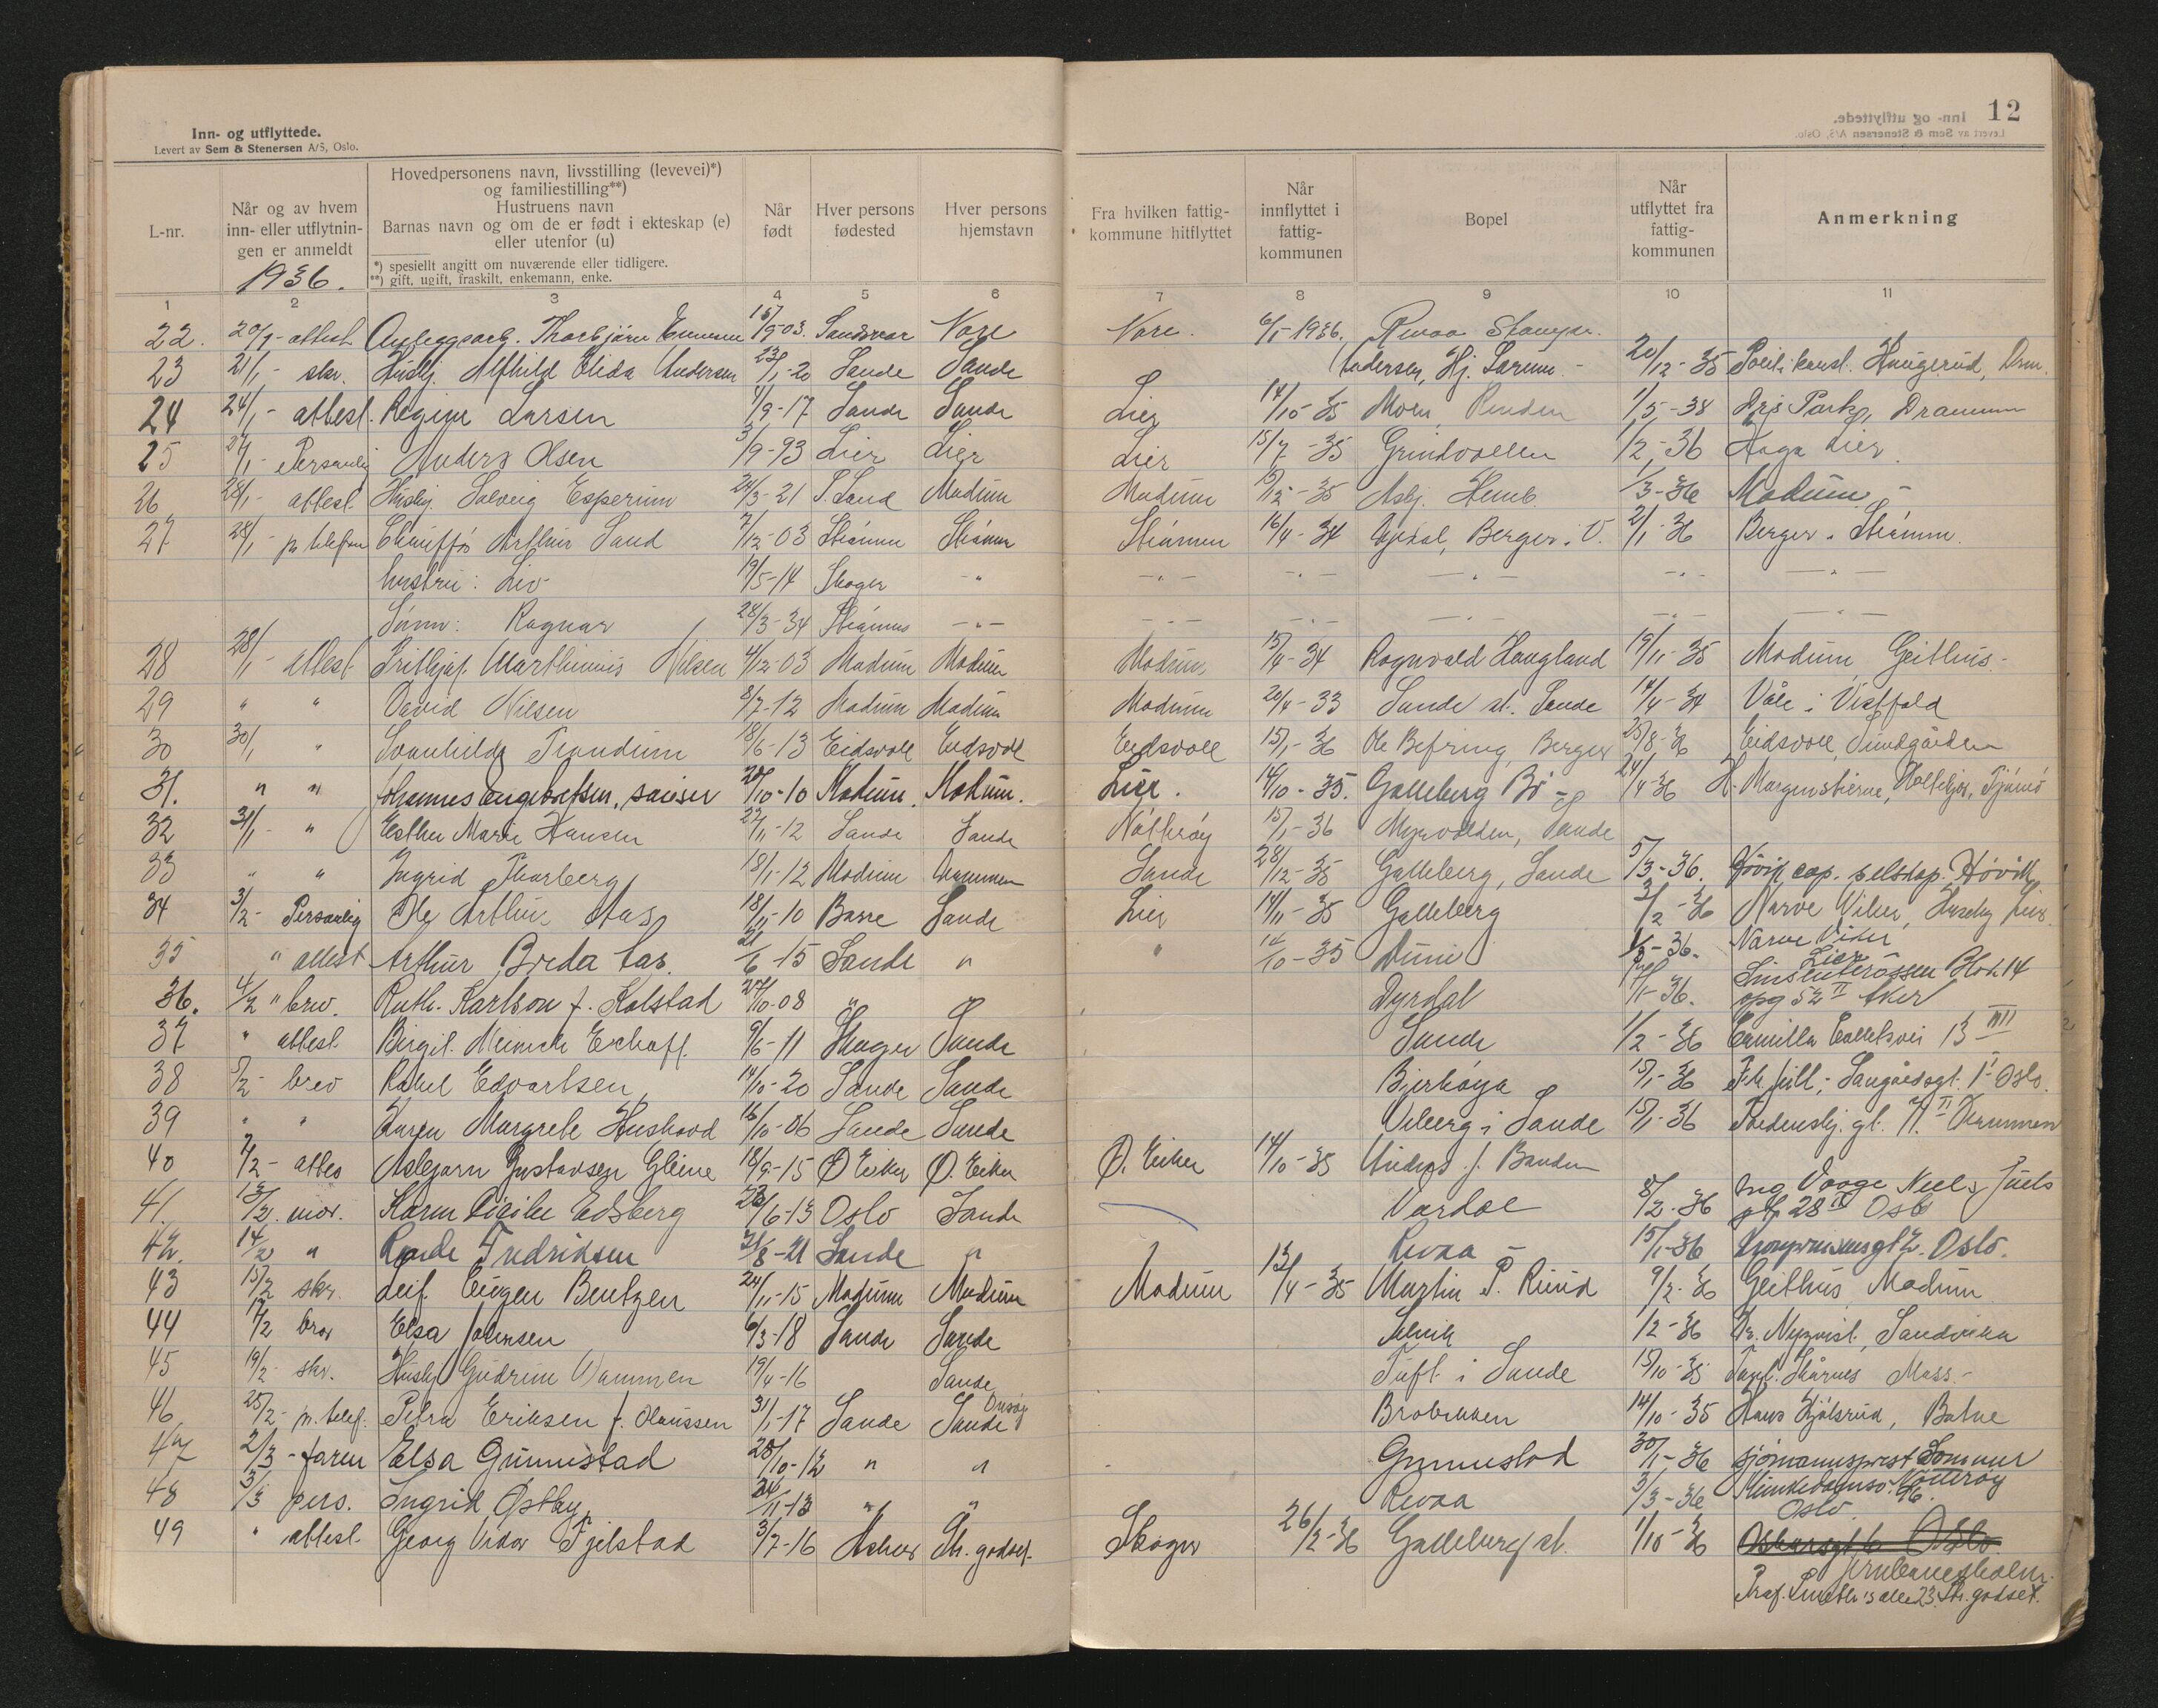 Inn- og utflyttede.
Levert av Sem & Stenersen A/S, Oslo.
12
L-nr.
Når og av hvem inn- eller utflytningen er anmeldt
1936.
Hovedpersonens navn, livsstilling (levevei)*) og familiestilling**)
Hustruens navn
Barnas navn og om de er født i ekteskap (e) eller utenfor (u)
*) spesiellt angitt om nuværende eller tidligere.
**) gift, ugift, fraskilt, enkemann, enke.
Når født
Hver persons fødested
Hver persons hjemstavn
Fra hvilken fattigkommune hitflyttet
Når innflyttet i fattigkommunen
Bopel
Når utflyttet fra fattigkommunen
Anmerkning
1 2 3 4 5 6 7 8 9 10 11
22. 20/1- attest Anleggsarb. Thorbjørn 15/9-03. Sandsvær Nore Nore. 6/1-1936, Revaa
23 21/1- skr. Hushj. Alfhild Elida Andersen 23/1-20 Sande Sande Andersen, Hj. 20/12-35 Haugerud, Drm.
24 24/1- attest. Regine Larsen 4/9-17 Sande Sande Lier 14/10-35 Moen, 1/5-38 Park, Drammen
25 27/1- Personlig Anders Olsen 3/9-93 Lier Lier Lier 15/7-35 Grindvollen 1/2-36 Haga Lier.
26 28/1- attest Hushj. Solveig Esperum 24/3-21 S. Land Modum Modum 15/12-35 Asbj. 1/3-36 Modum -
27 28/1- pr telefon Chauffør Arthur Sand 7/12-03 Strømm Strømm Strømm 16/4-34 Berger i V. 2/1-36 Berger i Strømm.
hustru: Liv 19/5-14 Skoger - " - " - - " - - " - - " - - " -
Sønn: Ragnar 28/3-34 Strømm - " - - " - - " - - " - - " - - " -
28 28/1- attest Frithjof Marthinius Nilsen 4/12-03 Modum Modum Modum 15/4-34 Ragnvald Haugland 19/11-35 Modum, Geithus -
29 " " David Nilsen 8/7-12 Modum Modum Modum 20/4-33 Sande st. Sande 14/4-34 Våle i Vestfold
30 30/1 " Svanhilda Trondum 18/6-13 Eidsvoll Eidsvoll Eidsvoll 15/1-36 Ole Befring, Berger 25/8-36 Eidsvoll, Sundgården
31. " " Johannes Engebretsen, sveiser 20/10-10 Modum. Modum. Lier. 14/10-35. Galleberg Bø 24/4-36 H. Morgenstierne, Tjømø
32 31/1- " Esther Marie Hansen 27/1-12 Sande Sande Nøtterøy 15/1-36 Myrvolden, Sande
33 " " Ingrid Thorberg 18/1-12 Modum Drammen Sande 28/12-35 Galleberg, Sande 5/3-36. Høvik
34 3/2- Personlig Ole Arthur Aas 18/11-10 Sande Lier 14/11-35 Galleberg 3/2-36 Narve Viker, Lier
35 " attest Arthur Breda Aas 21/6-15 Sande " " 14/10-35 1/3-36. Narve Viker Lier
36. 4/2 " brev. Ruth Karlson f. Kolstad 27/10-08 " " Dyrdal 36. Blok 14 opg 52 II Aker
37 " attest 9/6-11 Skoger Sande Sande 1/2-36 Camilla Collets vei 13 III
38 5/2- brev Rakel Edvartsen 14/10-20 Sande Sande Bjerkøya 15/1-36 Oslo.
39 " " Karen Margrete Hushovd 16/10-06 Sande Sande i Sande 15/1-36 Drammen
40 7/2- attes Asbjørn Gustavsen Gleine 18/9-15 Ø Eiker Ø. Eiker Ø. Eiker 14/10-35
41. 13/2. mor. Karen Cicilie Edsberg 23/6-13 Oslo Sande 8/2-36 Ing Vooge Niels Juels gt 28 Oslo
42. 14/2 " Fredriksen 31/8-21 Sande " Revaa - 15/1-36 Oslo.
43 15/2 skr. Leif Eugen Bentzen 24/11-15 Modum Modum Modum 13/4-35 Martin P. Ruud 9/2-36 Geithus Modum
44 17/2 bror Elsa Johnsen 6/3-18 Sande Sande Selvik 1/2-36 Dr. Nyqvist, Sandvika
45 19/2- skr. Hushj Gudrun Vammen 19/4-16 Sande Tuft i Sande 15/10-35 Moss. -
46 25/2- pr. telef. Petra Eriksen f. Olaussen 31/1-17 Sande Sande Onsøy Brobekken 14/10-35 Hans
47 2/3- faren Elsa Grimmstad 28/10-12 " " Gunnestad 30/1-36 sjømannsprest Sommer Nøtterøy
48 3/3 pers. Ingrid Østby 24/11-13 " " Revaa 3/3-36 Munkedamsv. 96. Oslo.
49 " attest. Georg Vidar Fjelstad 3/7-16 Asker Str. godset Skoger 26/2-36 Galleberg st. 1/10-36 Oslo
Prof. Smiths alle 23 Str. godset.